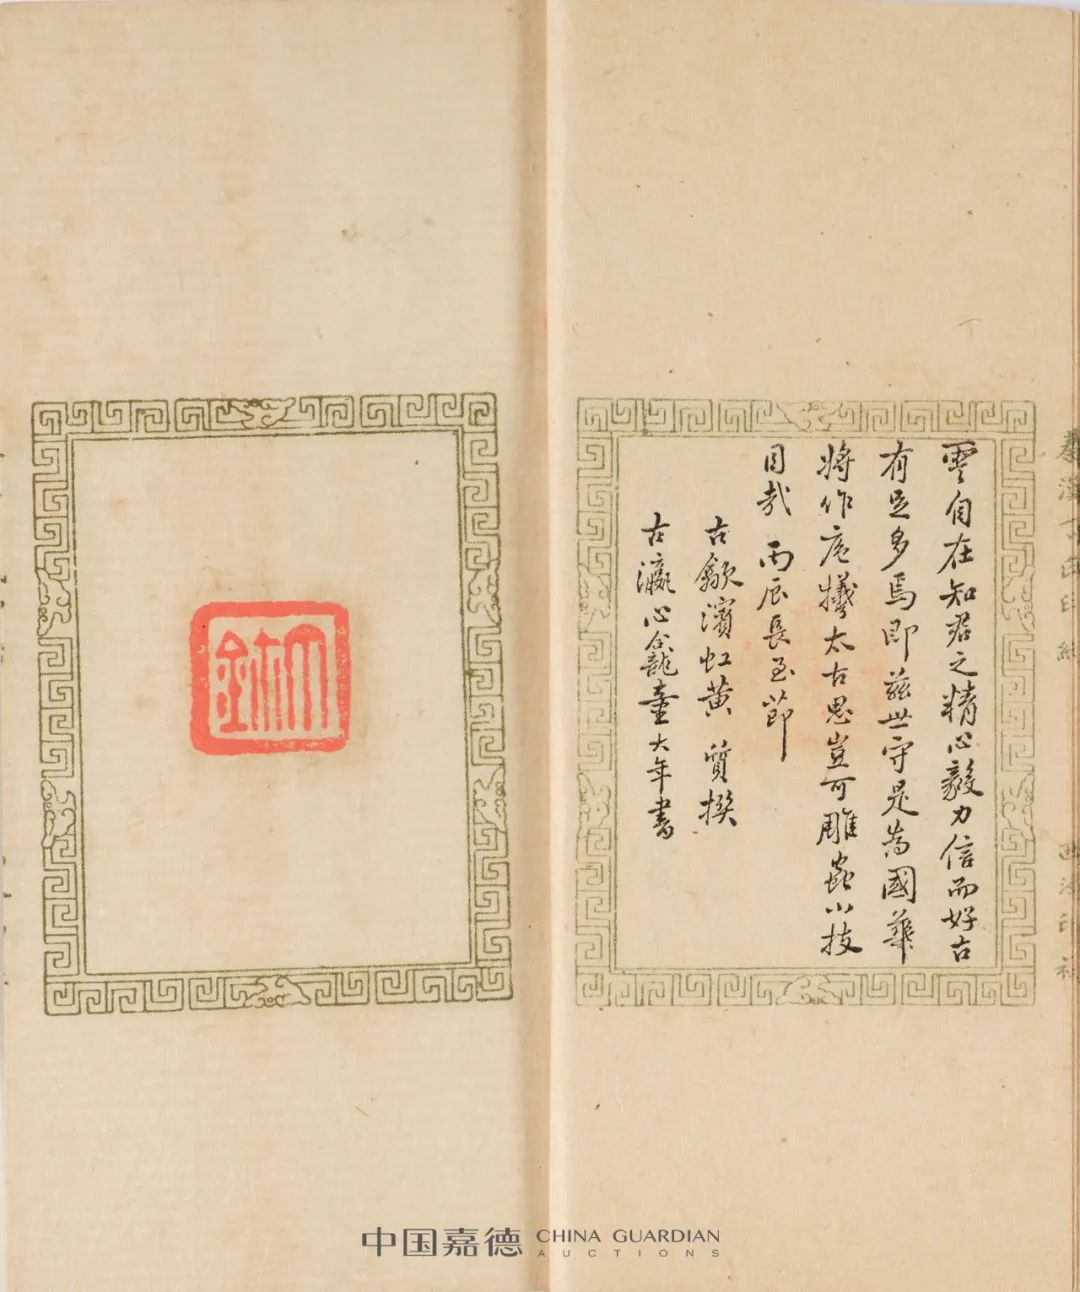 雲自在知君之精心毅力信而好古
有足多焉即茲世守是為國華
將作庖犧太古思豈可雕蟲小技
目哉 丙辰長至節
古歙濱虹黃 質撰
古瀛心龕童大年書
中国嘉德 CHINA GUARDIAN
AUCTIONS